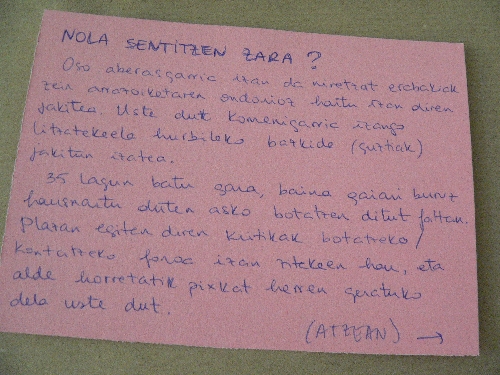 NOLA SENTITZEN ZARA?
Oso aberasgarria izan da neretzat erabakiak
zein arrazoiketaren ondorioz hartu izan diren
jakitea. Uste dut komenigarria izango
litzatekeela hurbileko bazkide (guztiak)
jakitun izatea.
35 lagun batu gara, baina gaiari buruz
hausnartu duten asko botatzen ditut faltan.
Plazan egiten diren kritikak botatzeko/
kontatzeko foroa izan zitekeen hau, eta
alde horretatik pixkat herren geratuko
dela uste dut.
(ATZEAN) →